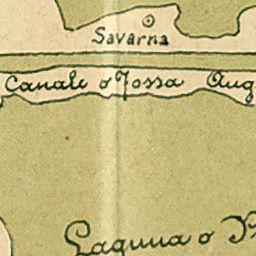 Savarna
Canale o Fossa Aug
Laguna o P